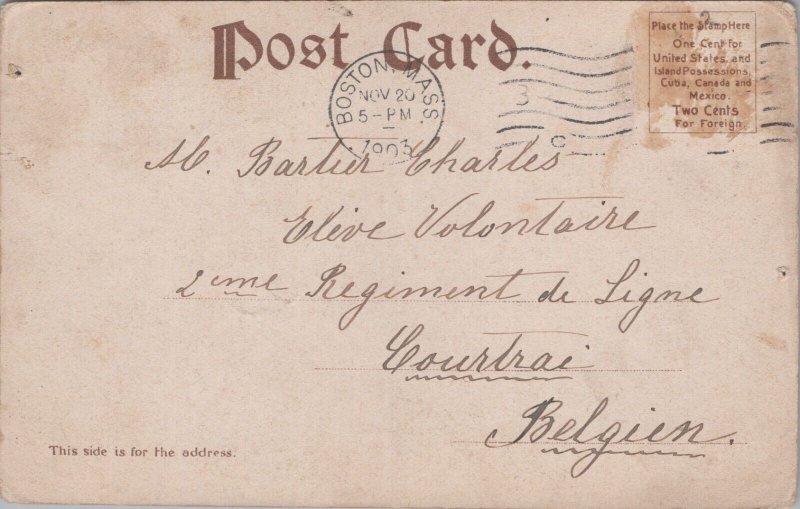 Post Card.
BOSTON, MASS.
NOV 20
5-PM
1903
3
C
2
Place the Stamp Here
One Cent for
United States, and
Island Possessions,
Cuba, Canada and
Mexico.
Two Cents
For Foreign.
M. Bartier Charles
Elève Volontaire
2eme Regiment de Ligne
Courtrai
Belgien.
This side is for the address.